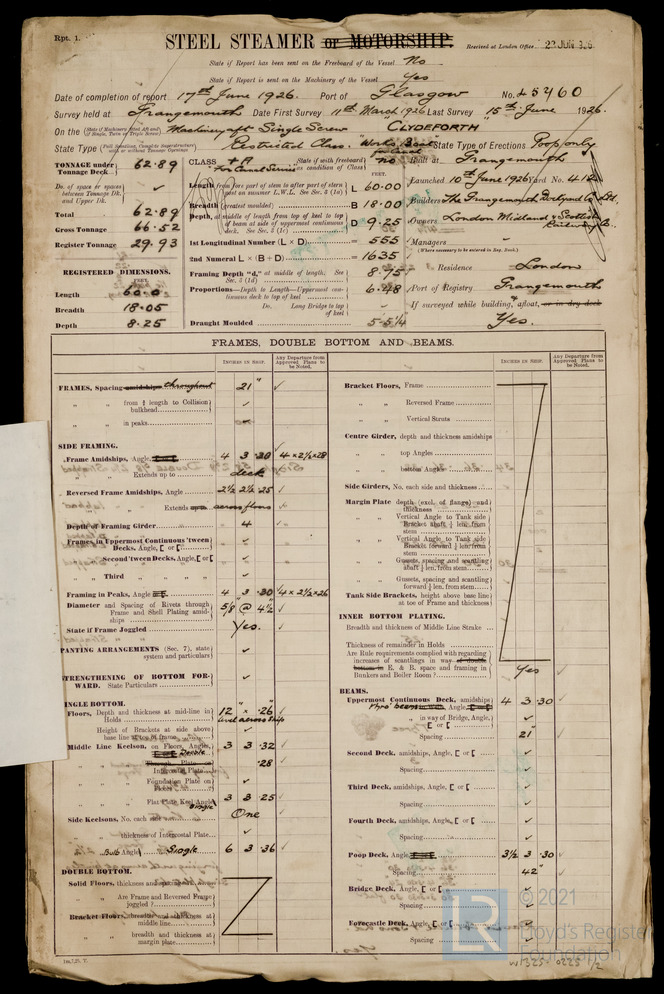 Rpt. 1.
STEEL STEAMER or MOTORSHIP.
Received at London Office 22 JUN 1926
State if Report has been sent on the Freeboard of the Vessel No
State if Report is sent on the Machinery of the Vessel Yes
Date of completion of report 17th June 1926. Port of Glasgow No. 45460
Survey held at Grangemouth Date First Survey 11th March 1926 Last Survey 15th June 1926.
On the Machinery aft Single Screw "CLYDEFORTH"
State Type Restricted Class. State Type of Erections Poop only
TONNAGE under Tonnage Deck 62.89
Do. of space or spaces between Tonnage Dk. and Upper Dk.
Total 62.89
Gross Tonnage 66.52
Register Tonnage 29.93
REGISTERED DIMENSIONS.
Length 60.0
Breadth 18.05
Depth 8.25
CLASS +A For Canal Service State if with freeboard as condition of Class No
FEET.
Length from fore part of stem to after part of stern post on summer L.W.L. See Sec. 3 (1a) L 60.00
Breadth (greatest moulded) B 18.00
Depth, at middle of length from top of keel to top of beam at side of uppermost continuous deck. See Sec. 3 (1c) D 9.25
1st Longitudinal Number (L × D) = 555
2nd Numeral L × (B + D) = 1635
Framing Depth "d," at middle of length. See Sec. 3 (1d) 8.75
Proportions—Depth to Length—Uppermost continuous deck to top of keel 6.48
Do. Long Bridge to top of keel
Draught Moulded 5-5¼
Built at Grangemouth
Launched 10th June 1926 Yard No. 412
Builders The Grangemouth Dockyard Co Ltd.
Owners London Midland & Scottish Railway Co.
Managers
(Where necessary to be entered in Reg. Book.)
Residence London
Port of Registry Grangemouth
If surveyed while building, afloat, or in dry dock
Yes.
FRAMES, DOUBLE BOTTOM AND BEAMS.
INCHES IN SHIP.
Any Departure from Approved Plans to be Noted.
FRAMES, Spacing amidships throughout 21"
" " from ⅗ length to Collision bulkhead
" " in peaks
SIDE FRAMING.
Frame Amidships, Angle 4 3 .30 4 × 2½ × 28
" " Extends up to deck
Reversed Frame Amidships, Angle 2½ 2½ .25
" " Extends across floors
Depth of Framing Girder 4
Frames in Uppermost Continuous 'tween Decks, Angle, [ or [
" Second 'tween Decks, Angle, [ or [
" Third " " "
Framing in Peaks, Angle 4 3 .30 4 × 2½ × 26
Diameter and Spacing of Rivets through Frame and Shell Plating amidships 5/8 @ 4½
State if Frame Joggled Yes.
PANTING ARRANGEMENTS (Sec. 7), state system and particulars
STRENGTHENING OF BOTTOM FORWARD. State Particulars
INGLE BOTTOM.
Floors, Depth and thickness at mid-line in Holds 12" × .26"
level across ship
Height of Brackets at side above base line at toe of frame
Middle Line Keelson, on Floors, Angles, Double 3 3 .32
" " Through Plate or Intercostal Plate .28
" " Foundation Plate on Floors
" " Flat Plate Keel Angles Single 3 3 .25
Side Keelsons, No. each side One
" " thickness of Intercostal Plate
" " Bulb Angle Single 6 3 .36
DOUBLE BOTTOM.
Solid Floors, thickness and spacing
" " Are Frame and Reversed Frame joggled?
Bracket Floor, breadth and thickness at middle line
" " breadth and thickness at margin plate
Bracket Floors, Frame
" " Reversed Frame
" " Vertical Struts
Centre Girder, depth and thickness amidships
" " top Angles
" " bottom Angles
Side Girders, No. each side and thickness
Margin Plate depth (excl. of flange) and thickness
" " Vertical Angle to Tank side Bracket abaft ¼ len. from stem
" " Vertical Angle to Tank side Bracket forward ¼ len. from stem
" " Gussets, spacing and scantling abaft ¼ len. from stem
" " Gussets, spacing and scantling forward ¼ len. from stem
Tank Side Brackets, height above base line at toe of Frame and thickness
INNER BOTTOM PLATING.
Breadth and thickness of Middle Line Strake
Thickness of remainder in Holds
Are Rule requirements complied with regarding increases of scantlings in way of double bottom in E. & B. space and framing in Bunkers and Boiler Room? Yes
BEAMS.
Uppermost Continuous Deck, amidships 4 3 .30
" " in way of Bridge, Angle, [ or [
Spacing 21"
Second Deck, amidships, Angle, [ or [
Spacing
Third Deck, amidships, Angle, [ or [
Spacing
Fourth Deck, amidships, Angle, [ or [
Spacing
Poop Deck, Angle 3½ 3 .30
Spacing 42
Bridge Deck, Angle, [ or [
Spacing
Forecastle Deck, Angle, [ or [
Spacing
© 2021
Lloyd's Register
Foundation
W1325-0225 1/2